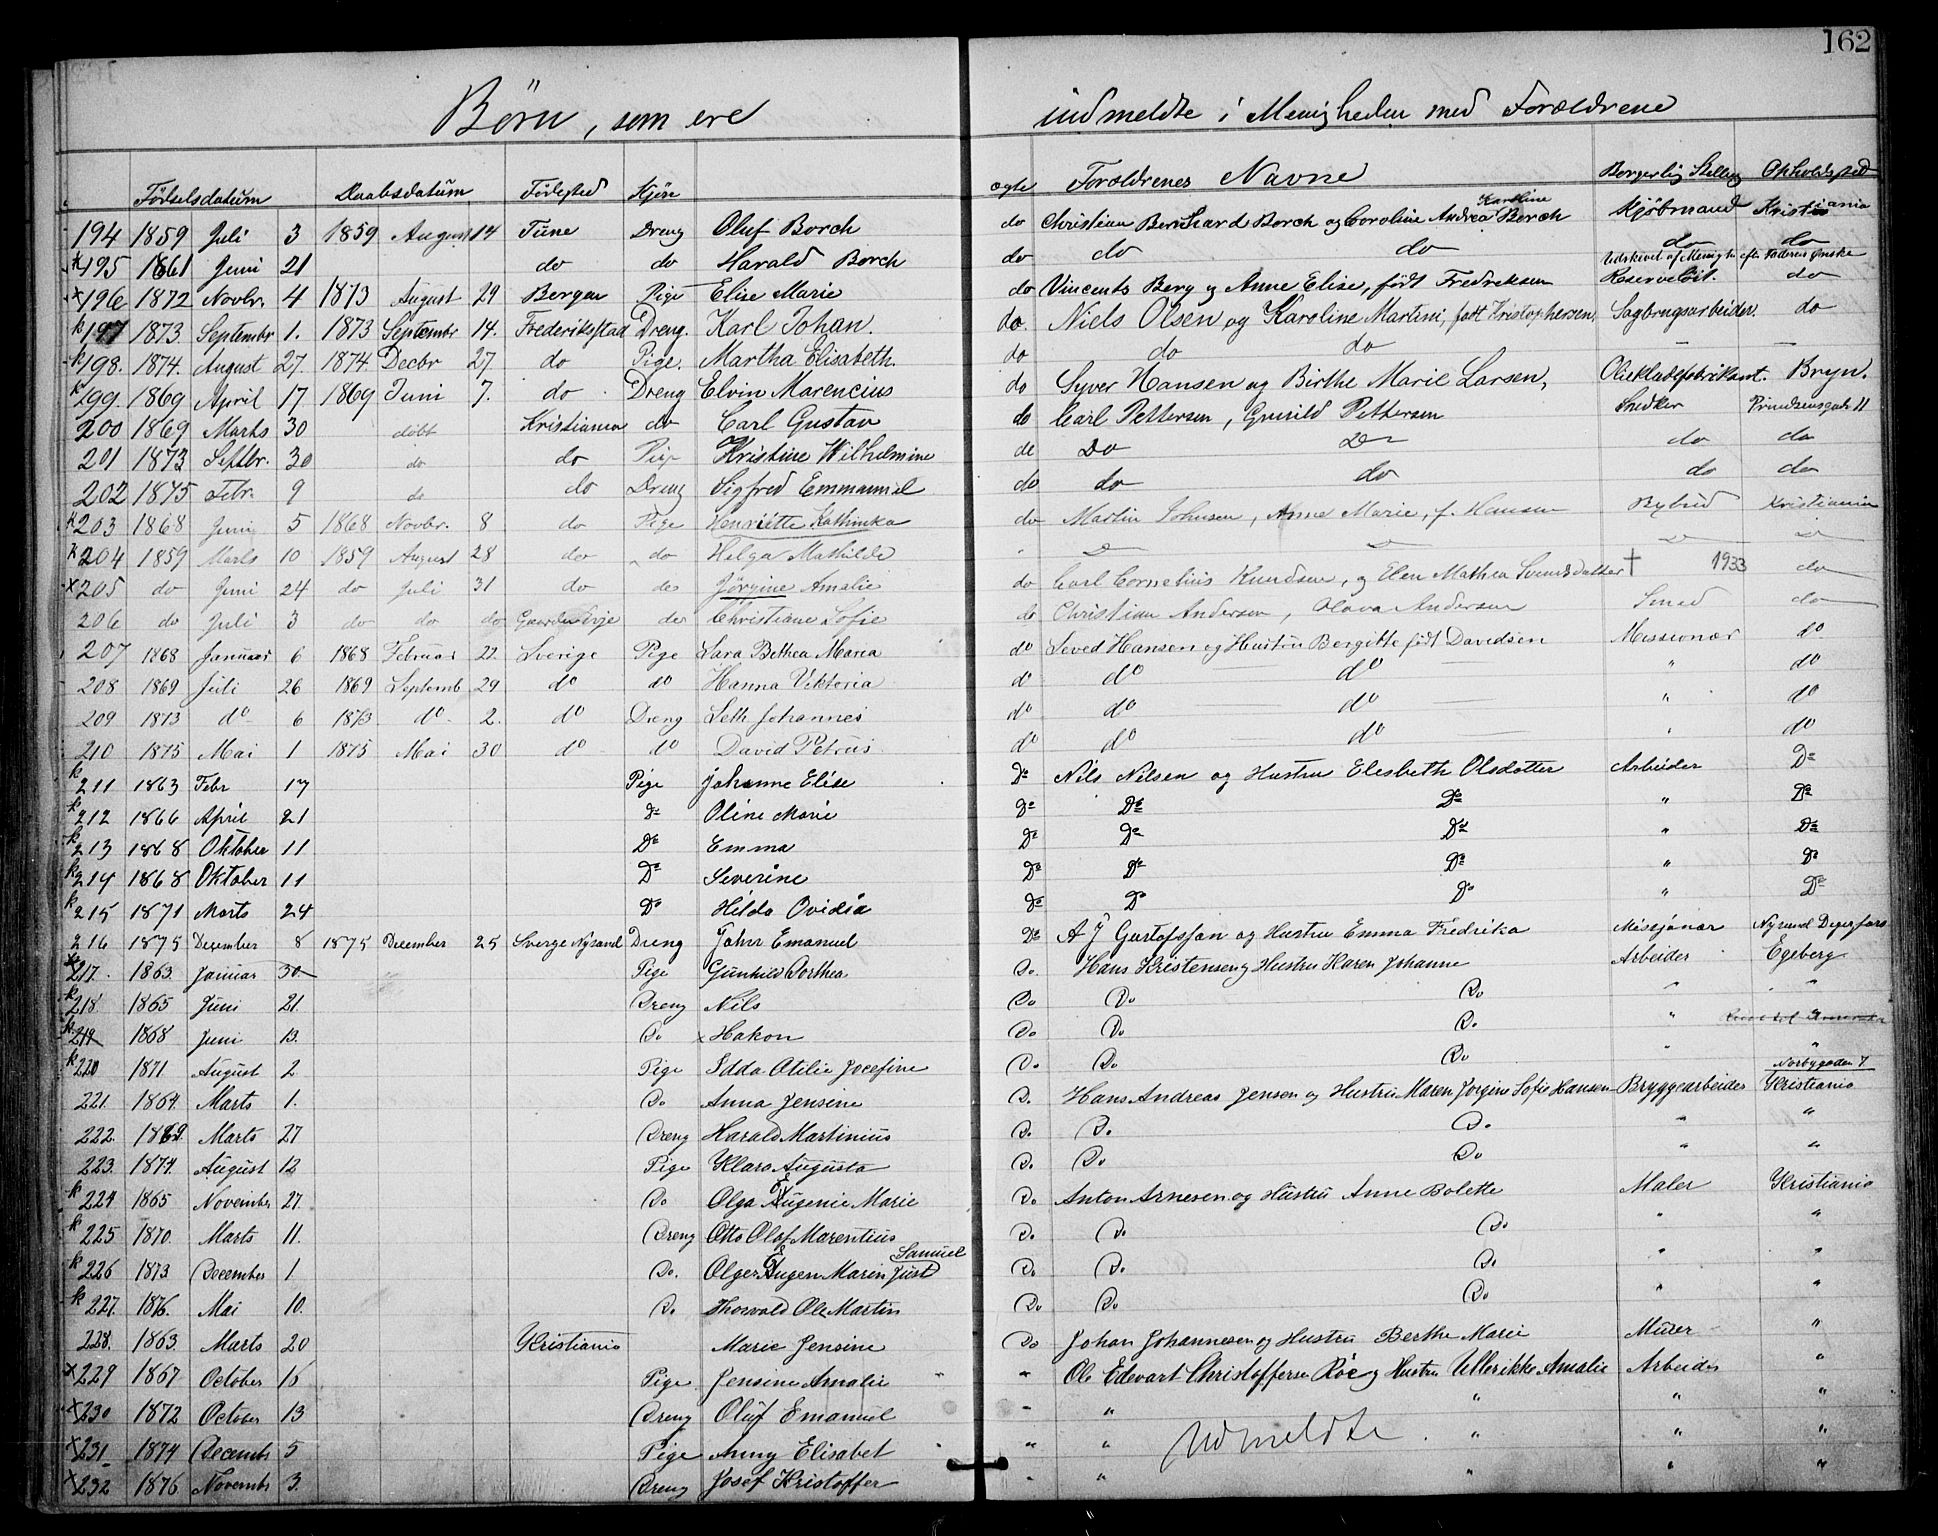 162
Börn, som ere indmeldte i Menigheden med Forældrene
Födselsdatum Daabsdatum Födested Kjön ægte Forældrenes Navne Borgerlig Stilling Opholdssted
194 1859 Juli 3 1859 August 14 Tune Dreng Oluf Borch do Christian Bernhard Borch og Caroline Andrea Karoline Borch Kjöbmand Kristiania
x195 1861 Juni 21 do do Harald Borch do do do do do
Udskrevet af Menigh. efter Faderens Ønske
x196 1872 Novbr. 4 1873 August 29 Bergen Pige Elise Marie do Vincents Berg og Anne Elise, født Fredriksen Reservelöit. do
k197 1873 Septembr 1. 1873 Septembr 14. Frederikstad Dreng. Karl Johan. do Niels Olsen og Karoline Martini, født Kristophersen, Sagbrugsarbeider. do
k198. 1874. August 27. 1874. Decbr 27. do Pige. Martha Elisabeth. do do do — —
k199. 1869 April 17 1869 Juni 7. do Dreng Elvin Marencius do Syver Hansen og Birthe Marie Larsen, Oliekladefabrikant. Bryn.
200 1869 Marts 30 döbt Kristiania do Carl Gustav do Carl Pettersen, Gunild Pettersen Snedker Prindsensgade 11
201 1873 Septbr. 30 do do Pige Kristine Wilhelmine do Do Do do do
202 1875 Febr. 9 do do Dreng Sigfred Emmanuel do do do do do
x203 1868 Juni 5 1868 Novbr. 8 do Pige Henriette Kathinka do Martin Johnsen, Anne Marie, f. Hansen Bybud Kristiania
k204 1859 Marts 10 1859 August 28 do do Helga Mathilde
x205 do Juni 24 do Juli 31 do do Jörgine Amalie do Carl Cornelius Knudsen, og Elen Mathea Svendsdatter † 1933 do
206 do Juli 3 do do do do Christiane Sofie do Christian Andersen, Olava Andersen Smed do
207 1868 Januar 6 1868 Februar 22. Sverige Pige Sara Bethea Maria do Seved Hansen og Hustru Bergitte født Davidsen Missionær do
208 1869 Juli 26 1869 Septemb 29 do do Hanna Viktoria do do do " do
209 1873 do 6 1873 do 2. do Dreng Seth Johannes do do do " do
210 1875 Mai 1 1875 Mai 30 do do David Petrus do do do " do
k211 1863 Febr 17 Pige Johanne Elise Do Nils Nilsen og Hustru Elesbeth Olsdatter Arbeider Do
k212 1866 April 21 Do Oline Marie Do Do Do " Do
k213 1868 Oktober 11 Do Emma Do Do Do " Do
k214 1868 Oktober 11 Do Severine Do Do Do " Do
k215 1871 Marts 24 Do Hilda Ovidia Do Do Do " Do
216 1875 December 8 1875 December 25 Sverge Nysund Dreng John Emanuel Do A J Gustafsson og Hustru Emma Fredrika Missjonær Nysund Degerfors
217. 1863. Januar 30 Pige Gunhild Dorthea Do. Hans Kristensen og Hustru Karen Johanne Arbeider Egeberg
k218. 1865 Juni 21. Dreng Nils Do Do Do " "
k219 1868 Juni 13. Do x Hakon Do Do Do. "
k220 1871 August 2. Pige Idda Otilie Josefine Do. Do. Do " "
221. 1864. Marts 1. Do Anna Jensine D. Hans Andreas Jensen og Hustru Maren Jorgine Sofie Hansen Bryggearbeider Norbygaden 7 Kristiania
222. 1869. Marts 27 Dreng Harald Martinius D. Do. Do. " "
223. 1874. August 12 Pige Klara Augusta D. Do Do " "
k224 1865 November 27. Do Olga Eugenie Marie Do Anton Arnesen og Hustru Anne Bolette Maler Kristiania
k225 1870. Marts 11. Dreng Otto Olof Marentius Do. Do. Do " "
k226 1873 December 1 Do. Olger Eugen Marin Just Samuel Do Do. Do. " "
k227. 1876. Mai 10. Do Thorvald Ole Martin Do Do. Do " "
228. 1863. Marts 20 Kristiania Marie Jensine Do Johan Johannesen og Hustru Berthe Marie Murer "
x229 1867 October 16 Pige Jensine Amalie " Ole Edevart Christoffersen Röe og Hustru Ullerikke Amalie Arbeider "
x230 1872 October 13 Dreng Oluf Emanuel " " " " "
x231 1874 Decembr 5 Pige Anny Elisabet " " Udmeldte " " "
x232 1876 Novembr 3. Dreng Josef Kristoffer " " " " "